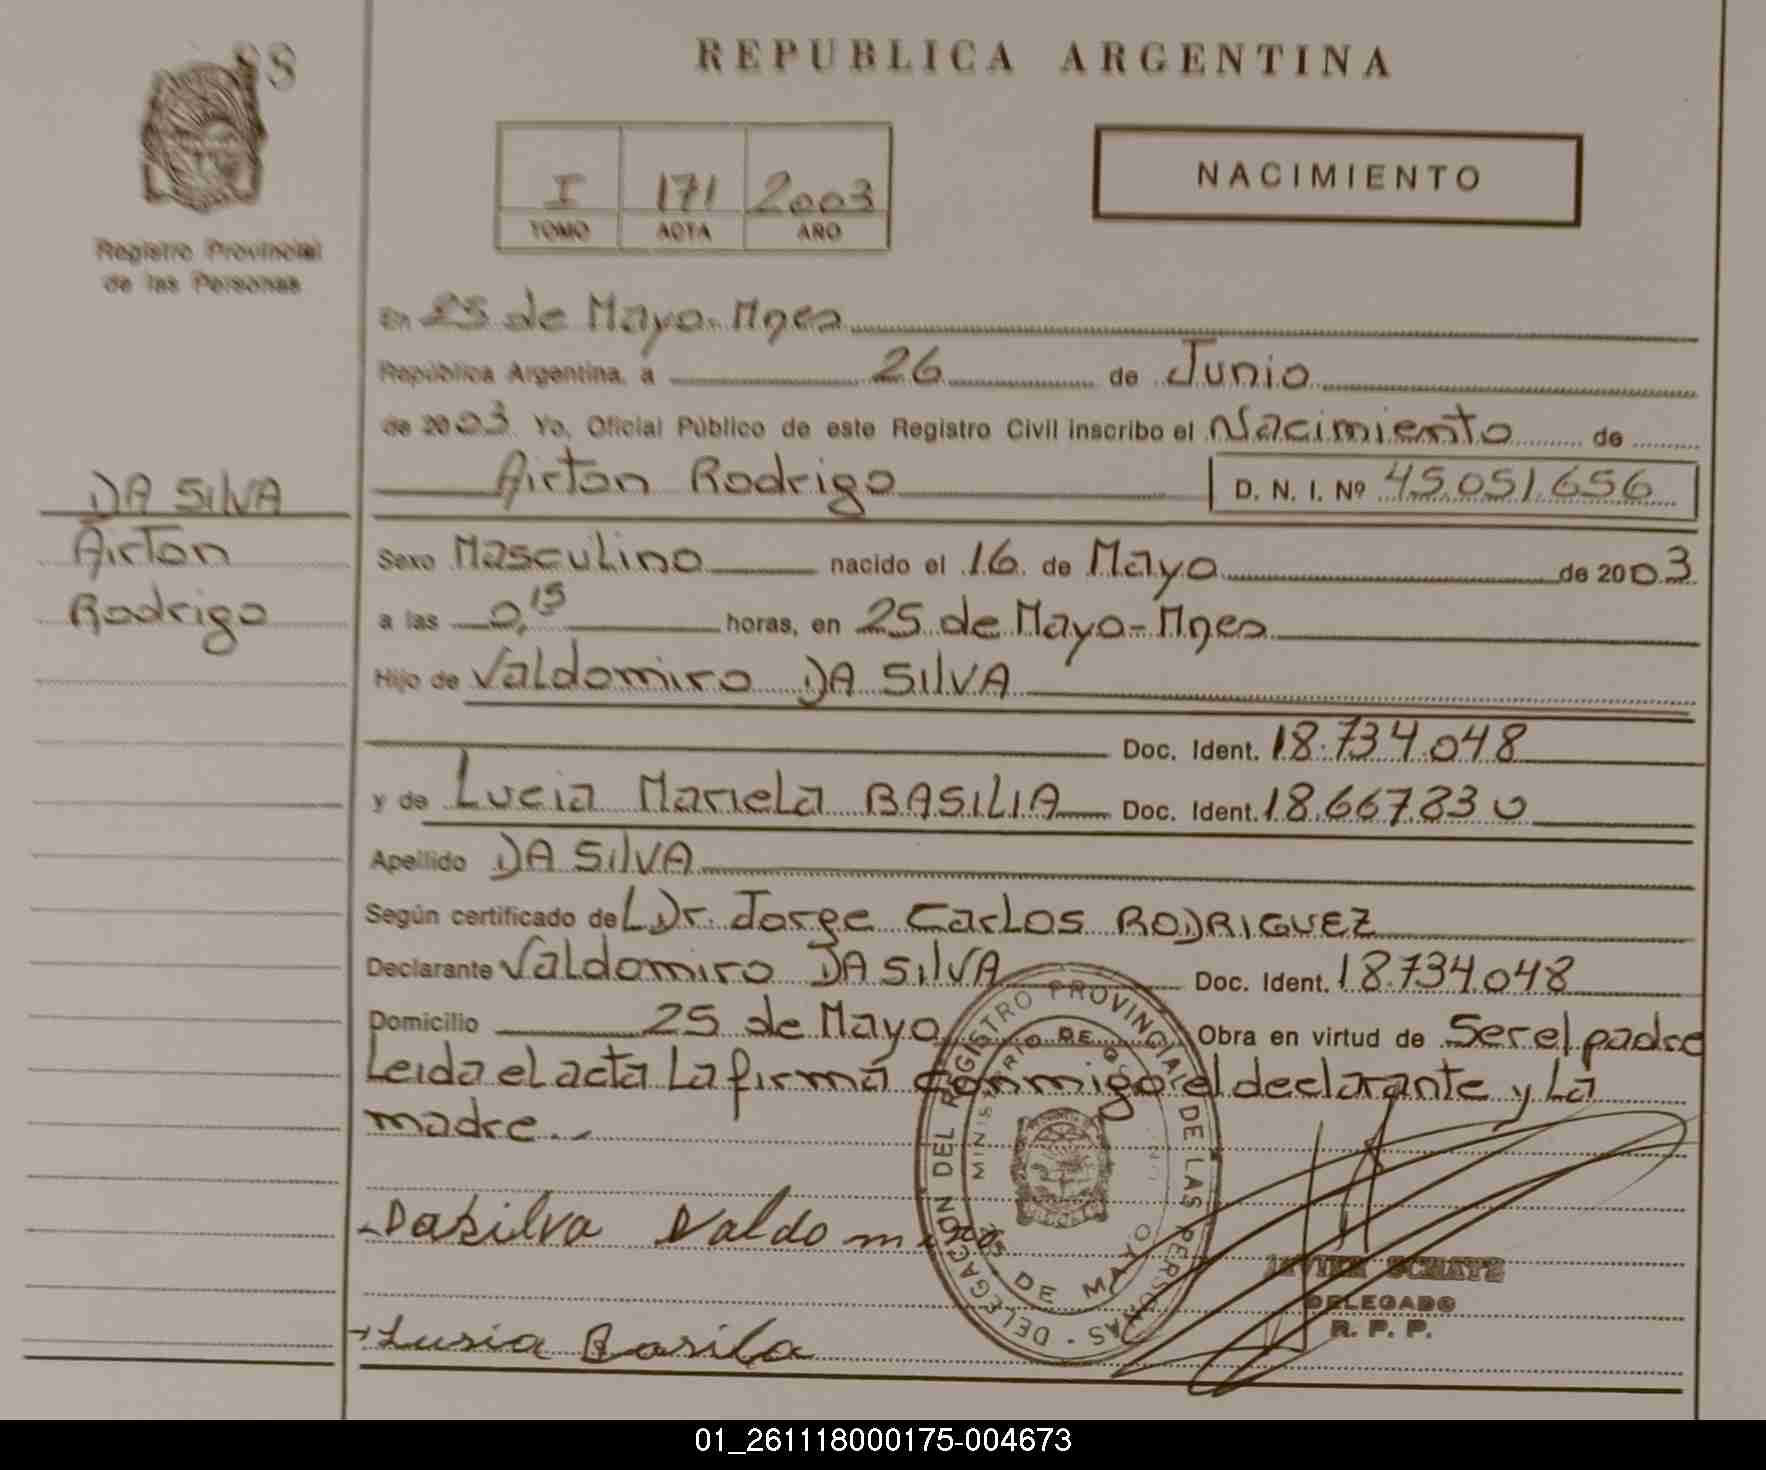 88
REPUBLICA ARGENTINA
I 171 2003
TOMO ACTA AÑO
NACIMIENTO
Registro Provincial
de las Personas
En 25 de Mayo-Mnes
República Argentina, a 26 de Junio
de 2003 Yo, Oficial Público de este Registro Civil inscribo el Nacimiento de
Airton Rodrigo D. N. I. Nº 45.051.656
DA SILVA
Airton
Rodrigo
Sexo Masculino nacido el 16 de Mayo de 2003
a las 0,15 horas, en 25 de Mayo-Mnes
Hijo de Valdomiro DA SILVA
Doc. Ident. 18.734.048
y de Lucia Mariela BASILIA Doc. Ident. 18.667.830
Apellido DA SILVA
Según certificado de L Dr. Jorge Carlos RODRIGUEZ
Declarante Valdomiro DA SILVA Doc. Ident. 18.734.048
Domicilio 25 de Mayo Obra en virtud de Ser el padre
Leida el acta La firma conmigo el declarante y La
madre.
DELEGACION DEL REGISTRO PROVINCIAL DE LAS PERSONAS
MINISTERIO DE
25 DE MAYO
Dasilva Valdomiro
JAVIER
DELEGADO
R. P. P.
Lusia Basila
01_261118000175-004673